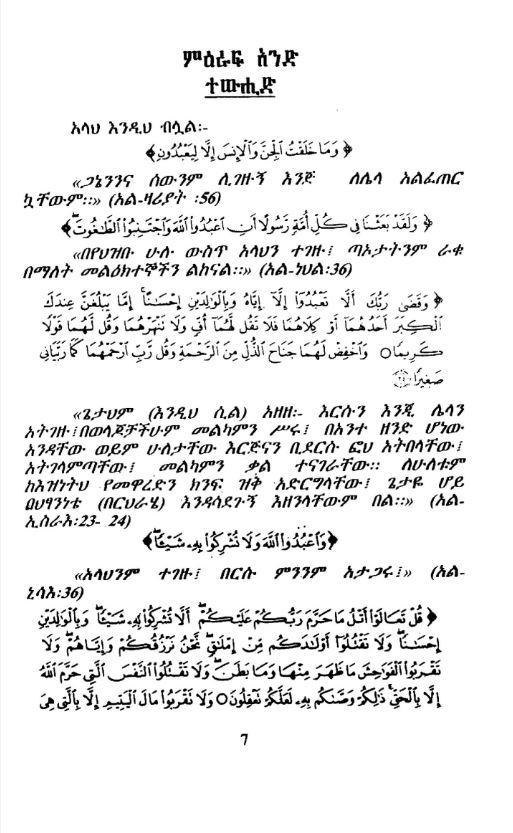 ምዕራፍ አንድ
ተውሒድ
አላህ እንዲህ ብሏል:-
﴿ وَمَا خَلَقْتُ الْجِنَّ وَالْإِنسَ إِلَّا لِيَعْبُدُونِ ﴾
«ጋኔንንና ሰውንም ሊገዙኝ እንጅ ለሌላ አልፈጠር
ኳቸውም።» (አል-ዛሪያት :56)
﴿ وَلَقَدْ بَعَثْنَا فِي كُلِّ أُمَّةٍ رَّسُولًا أَنِ اعْبُدُوا اللَّهَ وَاجْتَنِبُوا الطَّاغُوتَ ﴾
«በየህዝቡ ሁሉ ውስጥ አላህን ተገዙ፤ ጣኦታትንም ራቁ
በማለት መልዕክተኞችን ልከናል።» (አል-ነህል:36)
﴿ وَقَضَىٰ رَبُّكَ أَلَّا تَعْبُدُوا إِلَّا إِيَّاهُ وَبِالْوَالِدَيْنِ إِحْسَانًا ۚ إِمَّا يَبْلُغَنَّ عِندَكَ
الْكِبَرَ أَحَدُهُمَا أَوْ كِلَاهُمَا فَلَا تَقُل لَّهُمَا أُفٍّ وَلَا تَنْهَرْهُمَا وَقُل لَّهُمَا قَوْلًا
كَرِيمًا ۝ وَاخْفِضْ لَهُمَا جَنَاحَ الذُّلِّ مِنَ الرَّحْمَةِ وَقُل رَّبِّ ارْحَمْهُمَا كَمَا رَبَّيَانِي
صَغِيرًا
«ጌታህም (እንዲህ ሲል) አዘዘ:- እርሱን እንጂ ሌላን
አትገዙ፤በወላጆቻችሁም መልካምን ሥሩ፤ በአንተ ዘንድ ሆነው
አንዳቸው ወይም ሁለታቸው እርጅናን ቢደርሱ ፎህ አትበላቸው፤
አትገላምጣቸው፤ መልካምን ቃል ተናገራቸው። ለሁለቱም
ከእዝነትህ የመዋረድን ክንፍ ዝቅ አድርግላቸው፤ ጌታዬ ሆይ
በህፃንነቴ (በርህራሄ) እንዳሳደጉኝ እዘንላቸውም በል።» (አል-
ኢስራእ:23- 24)
﴿ وَاعْبُدُوا اللَّهَ وَلَا تُشْرِكُوا بِهِ شَيْئًا ﴾
«አላህንም ተገዙ፤ በርሱ ምንንም አታጋሩ፤» (አል-
ኒሳእ:36)
﴿ قُلْ تَعَالَوْا أَتْلُ مَا حَرَّمَ رَبُّكُمْ عَلَيْكُمْ ۖ أَلَّا تُشْرِكُوا بِهِ شَيْئًا ۖ وَبِالْوَالِدَيْنِ
إِحْسَانًا ۖ وَلَا تَقْتُلُوا أَوْلَادَكُم مِّنْ إِمْلَاقٍ ۖ نَّحْنُ نَرْزُقُكُمْ وَإِيَّاهُمْ ۖ وَلَا
تَقْرَبُوا الْفَوَاحِشَ مَا ظَهَرَ مِنْهَا وَمَا بَطَنَ ۖ وَلَا تَقْتُلُوا النَّفْسَ الَّتِي حَرَّمَ اللَّهُ
إِلَّا بِالْحَقِّ ۚ ذَٰلِكُمْ وَصَّاكُم بِهِ لَعَلَّكُمْ تَعْقِلُونَ ۝ وَلَا تَقْرَبُوا مَالَ الْيَتِيمِ إِلَّا بِالَّتِي هِيَ
7